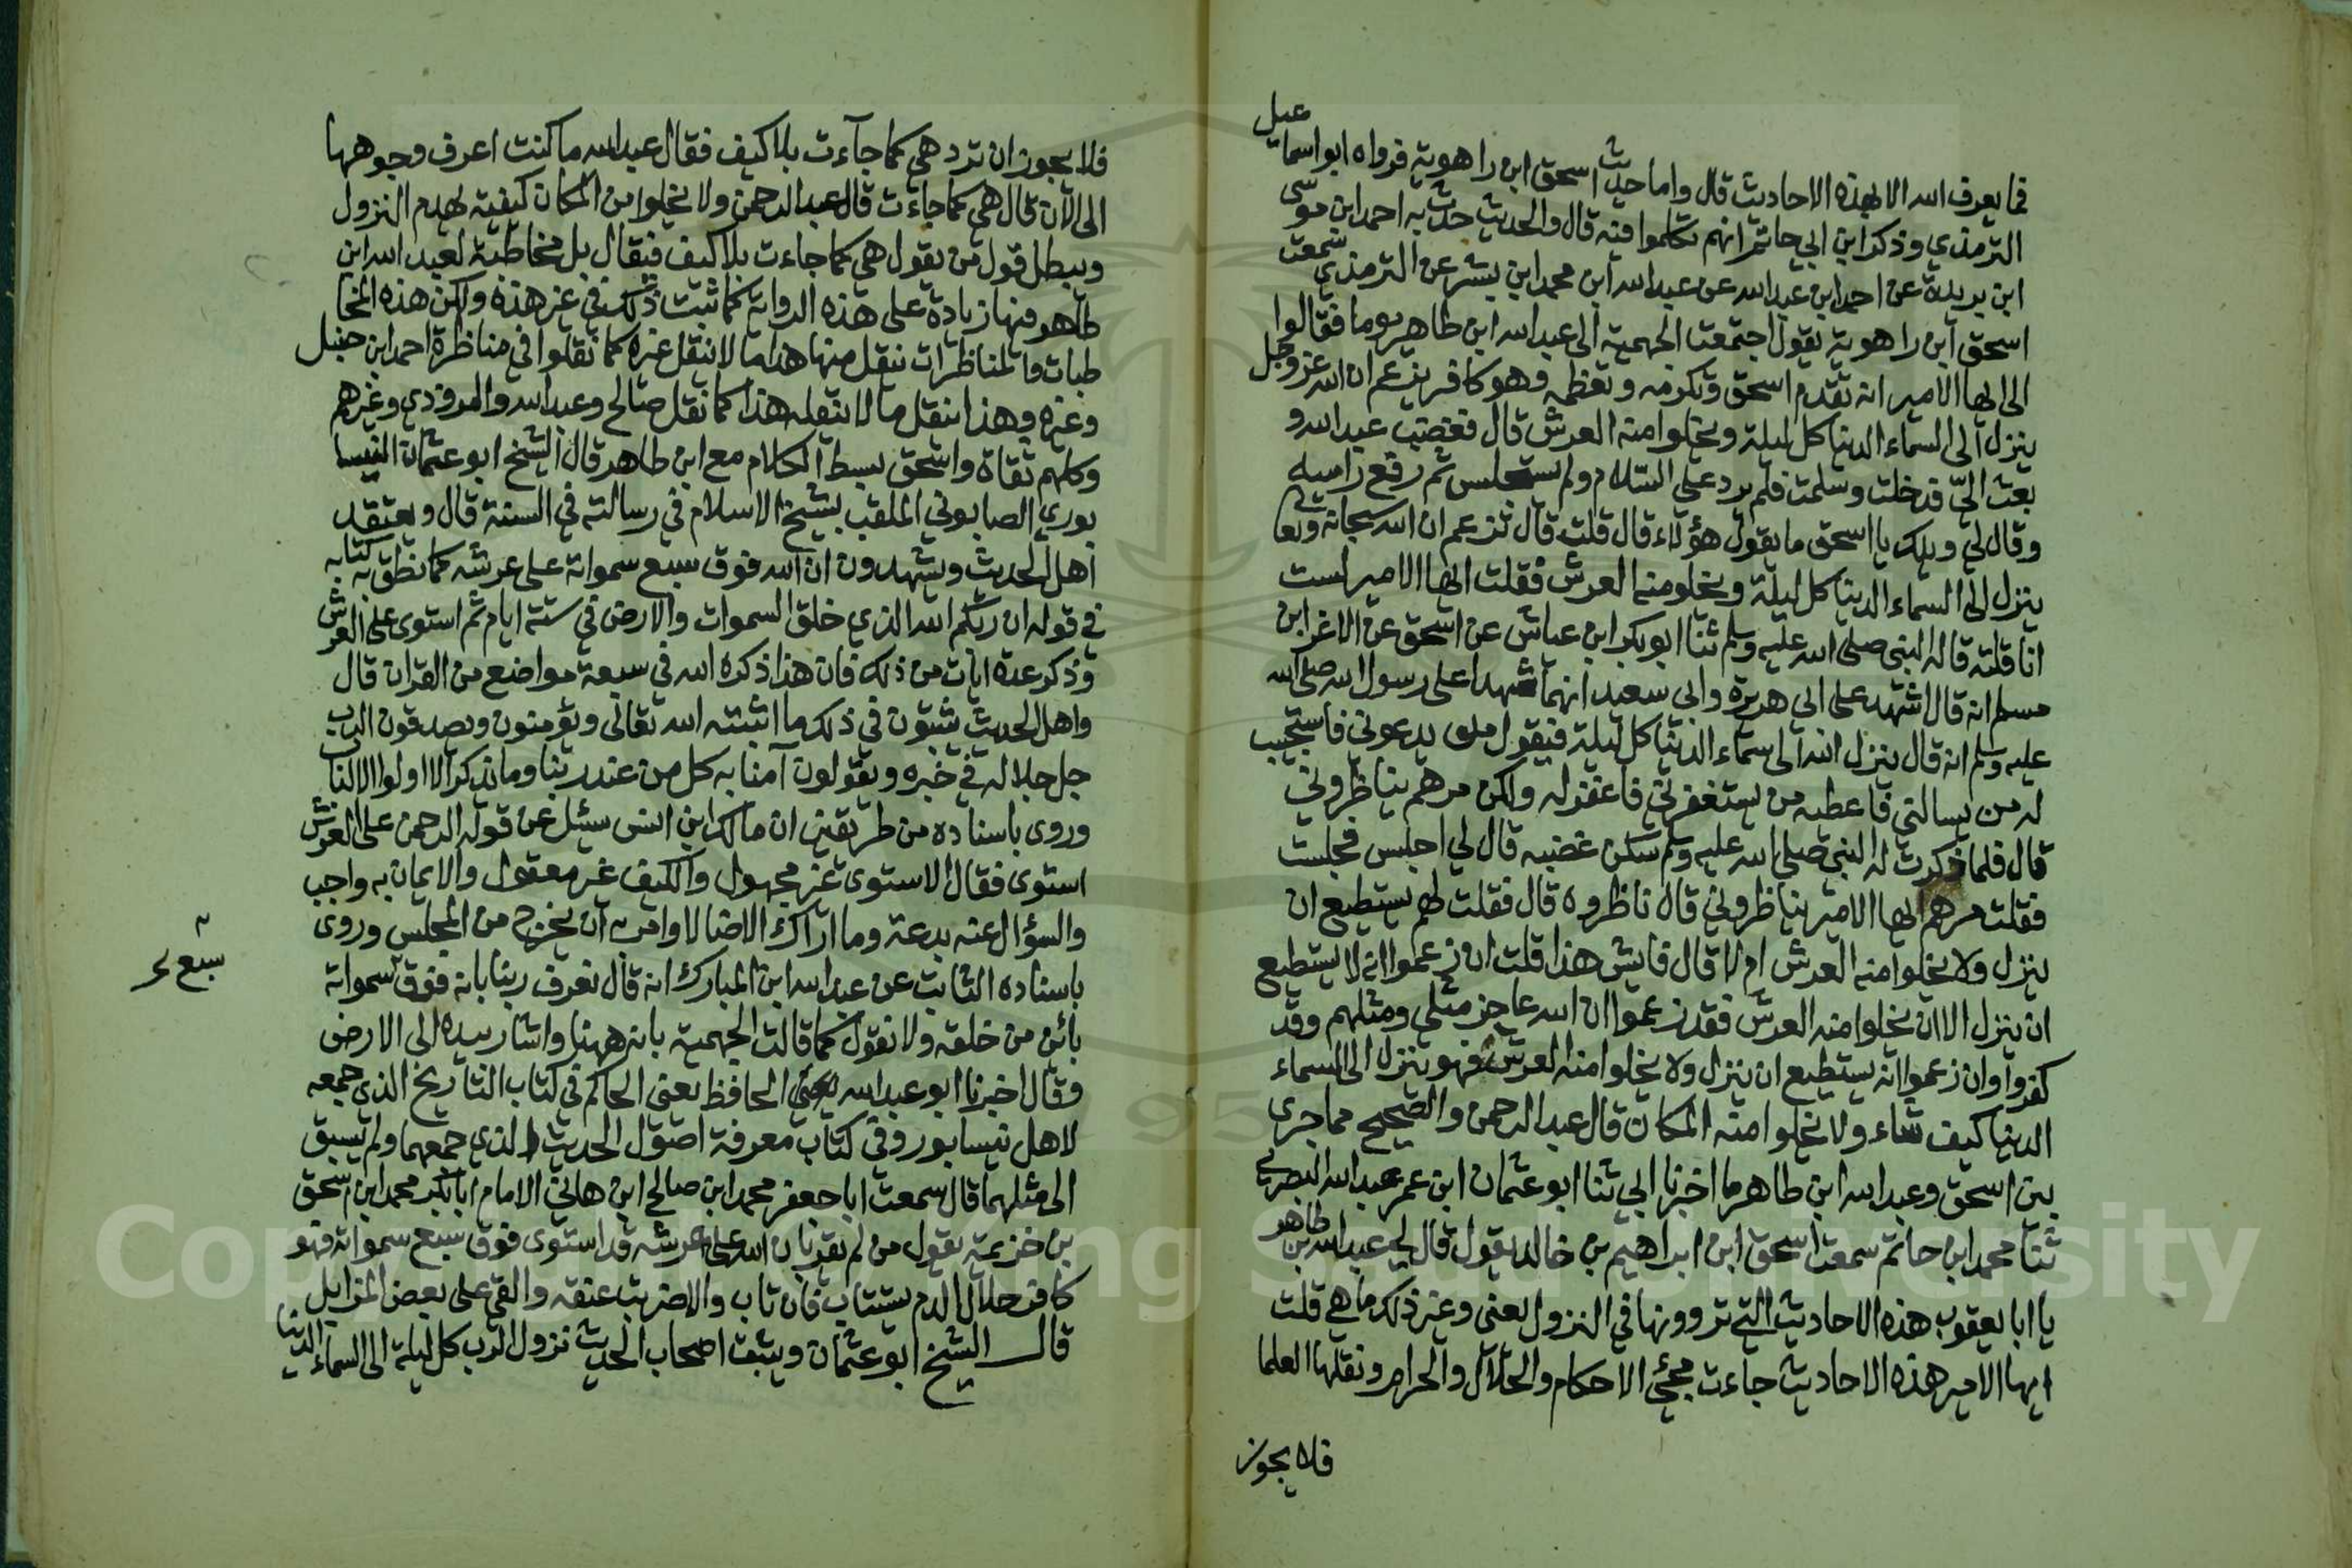 فما يعرف الله الا بهذه الاحاديث قال واما حديث اسحق ابن راهوية فرواه ابو اسماعيل
الترمذي وذكر ابن ابي حاتم انهم تكلموا فيه قال والحديث حدث به احمد ابن موسى
ابن بريدة عن احمد ابن عبد الله عن عبد الله ابن محمد ابن بشر عن الترمذي سمعت
اسحق ابن راهوية يقول اجتمعت الجهمية الى عبد الله ابن طاهر يوما فقالوا
الى ايها الامير انه تقدم اسحق وتكرمه وتعظمه وهو كافر يزعم ان الله عز وجل
ينزل الى السماء الدنيا كل ليلة ويخلوا منه العرش قال فغضب عبد الله و
بعث الي فدخلت وسلمت فلم يرد علي السلام ولم يستجلس ثم رفع راسه
وقال لي ويلك يا اسحق ما يقول هؤلاء قال قلت قال تزعم ان الله سبحانه وتعا
ينزل الى السماء الدنيا كل ليلة ويخلو منه العرش فقلت ايها الامير لست
انا قلته قاله النبي صلى الله عليه وسلم ثنا ابو بكر ابن عياش عن اسحق عن الاغر ابن
مسلم انه قال اشهد على ابي هريرة وابي سعيد انهما شهدا على رسول الله صلى الله
عليه وسلم انه قال ينزل الله الى سماء الدنيا كل ليلة فيقول من يدعوني فاستجيب
له من يسالني فاعطيه من يستغفرني فاغفر له ولكن مرهم يناظروني
قال فلما ذكرت له النبي صلى الله عليه وسلم سكن غضبه قال لي اجلس فجلست
فقلت مرهم ايها الامير يناظروني قال ناظروه قال فقلت لهم يستطيع ان
ينزل ولا يخلوا منه العرش ام لا قال فايش هذا قلت ان زعموا انه لا يستطيع
ان ينزل الا ان يخلوا منه العرش فقد زعموا ان الله عاجز مثلي ومثلهم وقد
كفروا وان زعموا انه يستطيع ان ينزل ولا يخلوا منه العرش فهو ينزل الى السماء
الدنيا كيف شاء ولا يخلوا منه المكان قال عبد الرحمن والصحيح مما جرى
بين اسحق وعبد الله ابن طاهر ما اخبرنا ابي ثنا ابو عثمان ابن عمر عبد الله البصري
ثنا محمد ابن حاتم سمعت اسحق ابن ابراهيم بن خالد يقول قال لي عبد الله بن طاهر
يا ابا يعقوب هذه الاحاديث التي تروونها في النزول يعني وغير ذلك ما هي قلت
ايها الامير هذه الاحاديث جاءت مجئ الاحكام والحلال والحرام ونقلها العلما
فلا يجوز
فلا يجوز ان ترد هي كما جآءت بلا كيف فقال عبد الله ما كنت اعرف وجوهها
الى الآن قال هي كما جاءت قال عبد الرحمن ولا يخلوا من المكان كيفية لهدم النزول
ويبطل قول من يقول هي كما جاءت بلا كيف فيقال بل مخاطبة لعبد الله ابن
طاهر فيها زيادة على هذه الرواية كما ثبت ذلك في غير هذه ولكن هذه المخا
طبات والمناظرات ينقل منها هذا ما لا ينقل غيره كما نقلوا في مناظرة احمد ابن حنبل
وغيره وهذا ينقل ما لا ينقله هذا كما نقل صالح وعبد الله والمروذي وغيرهم
وكلهم ثقاة واسحق بسط الكلام مع ابن طاهر قال الشيخ ابو عثمان النيسا
بوري الصابوني الملقب بشيخ الاسلام في رسالته في السنة قال ويعتقد
اهل الحديث ويشهدون ان الله فوق سبع سمواته على عرشه كما نطق به كتابه
في قوله ان ربكم الله الذي خلق السموات والارض في ستة ايام ثم استوى على العرش
وذكر عدة ايات من ذلك فان هذا ذكره الله في سبعة مواضع من القران قال
واهل الحديث يثبتون في ذلك ما اثبته الله تعالى ويؤمنون ويصدقون الرب
جل جلاله في خبره ويقولون آمنا به كل من عند ربنا وما يذكر الا اولوا الالباب
وروى باسناده من طريقين ان مالك ابن انس سئل عن قوله الرحمن على العرش
استوى فقال الاستوى غير مجهول والكيف غير معقول والايمان به واجب
والسؤال عنه بدعة وما اراك الا ضالا وامر به ان يخرج من المجلس وروى
باسناده الثابت عن عبد الله ابن المبارك انه قال نعرف ربنا بانه فوق سمواته
سبع
بائن من خلقه ولا نقول كما قالت الجهمية بانه ههنا واشار بيده الى الارض
وقال اخبرنا ابو عبد الله الحافظ يعني الحاكم في كتاب التاريخ الذي جمعه
لاهل نيسابور وفي كتاب معرفة اصول الحديث الذي جمعهما ولم يسبق
الى مثلهما قال سمعت ابا جعفر محمد ابن صالح ابن هاني الامام ابا بكر محمد ابن اسحق
بن خزيمة يقول من لم يقر بان الله على عرشه قد استوى فوق سبع سمواته فهو
كافر حلال الدم يستتاب فان تاب والا ضربت عنقه والقي على بعض المزابل
قال الشيخ ابو عثمان ويثبت اصحاب الحديث نزول الرب كل ليلة الى السماء الدنيا
Copyright © King Saud University